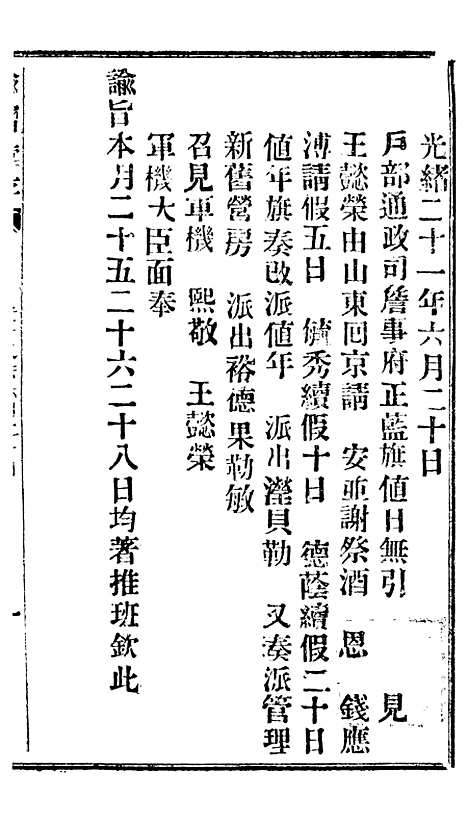 光緒二十一年六月二十日
戶部通政司詹事府正藍旗值日無引　見
王懿榮由山東回京請　安並謝祭酒　恩　錢應
溥請假五日　毓秀續假十日　德蔭續假二十日
值年旗奏改派值年　派出瀅貝勒　又奏派管理
新舊營房　派出裕德果勒敏
召見軍機　熙敬　王懿榮
軍機大臣面奉
諭旨本月二十五二十六二十八日均著推班欽此